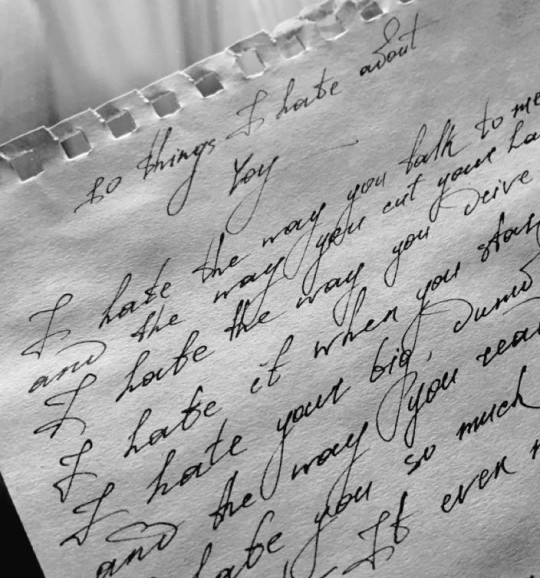 10 things I hate about
You
I hate the way you talk to me
and the way you cut your ha
I hate the way you drive
I hate it when you star
I hate your big, dumb
and the way you rea
hate you so much
It even